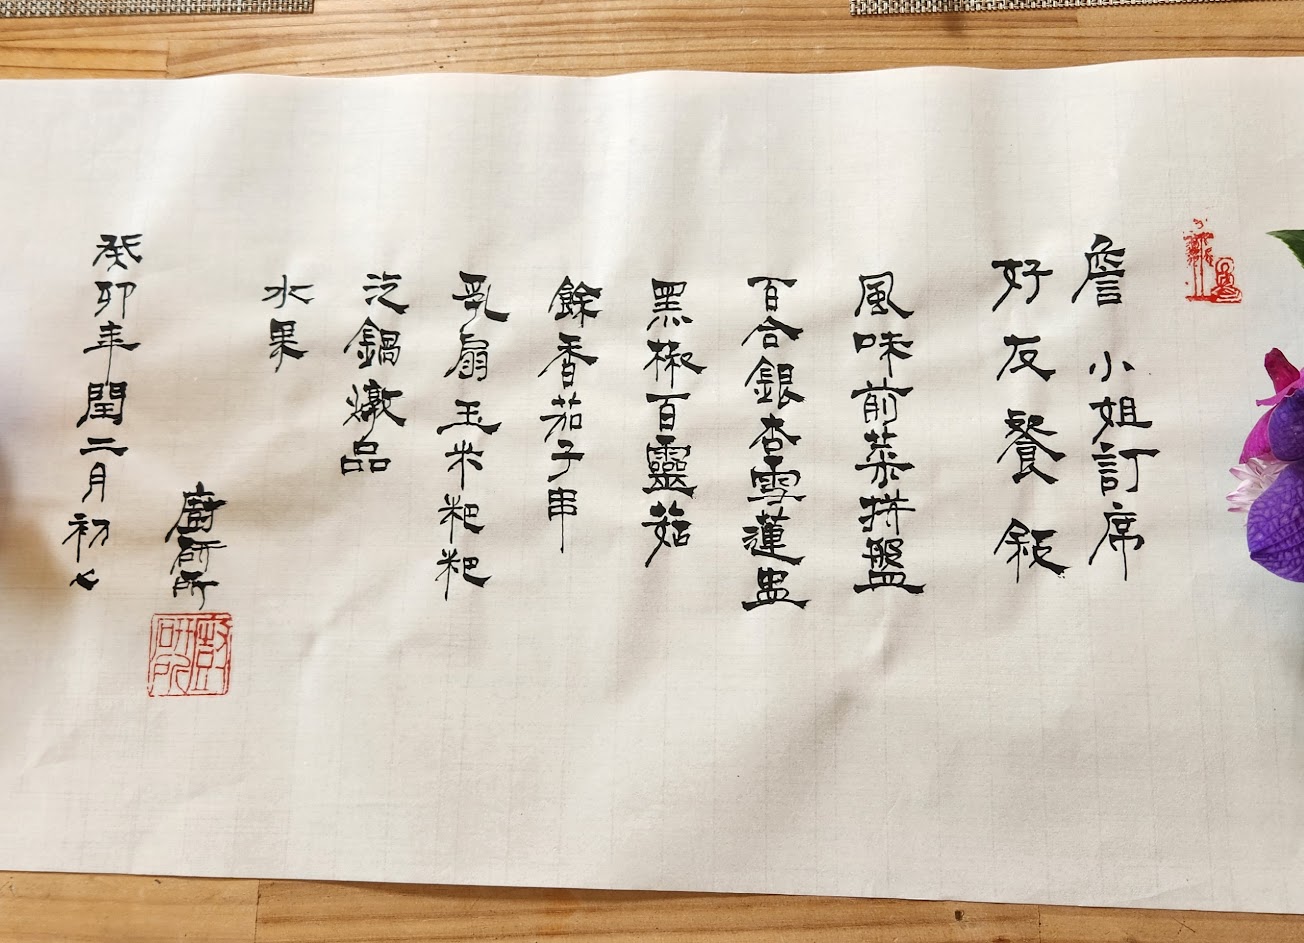 詹 小姐訂席
好友餐敍
風味前菜拼盤
百合銀杏雪蓮盅
黑椒百靈菇
餘香茄子串
乳扇玉米粑粑
汽鍋燉品
水果
廚研所
廚研所
癸卯年閏二月初七